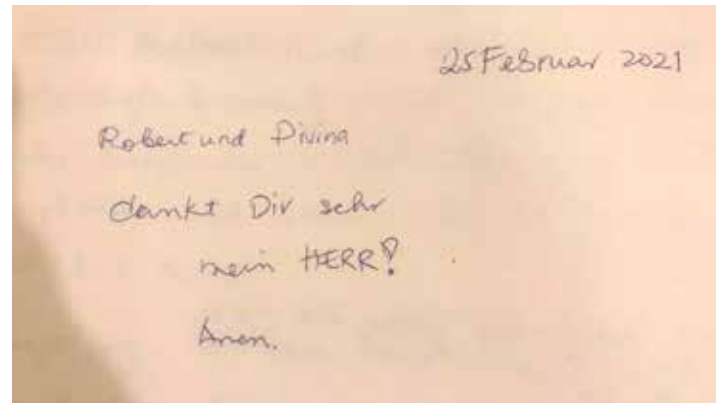 25 Februar 2021
Robert und Divina
dankt Dir sehr
mein HERR!
Amen.